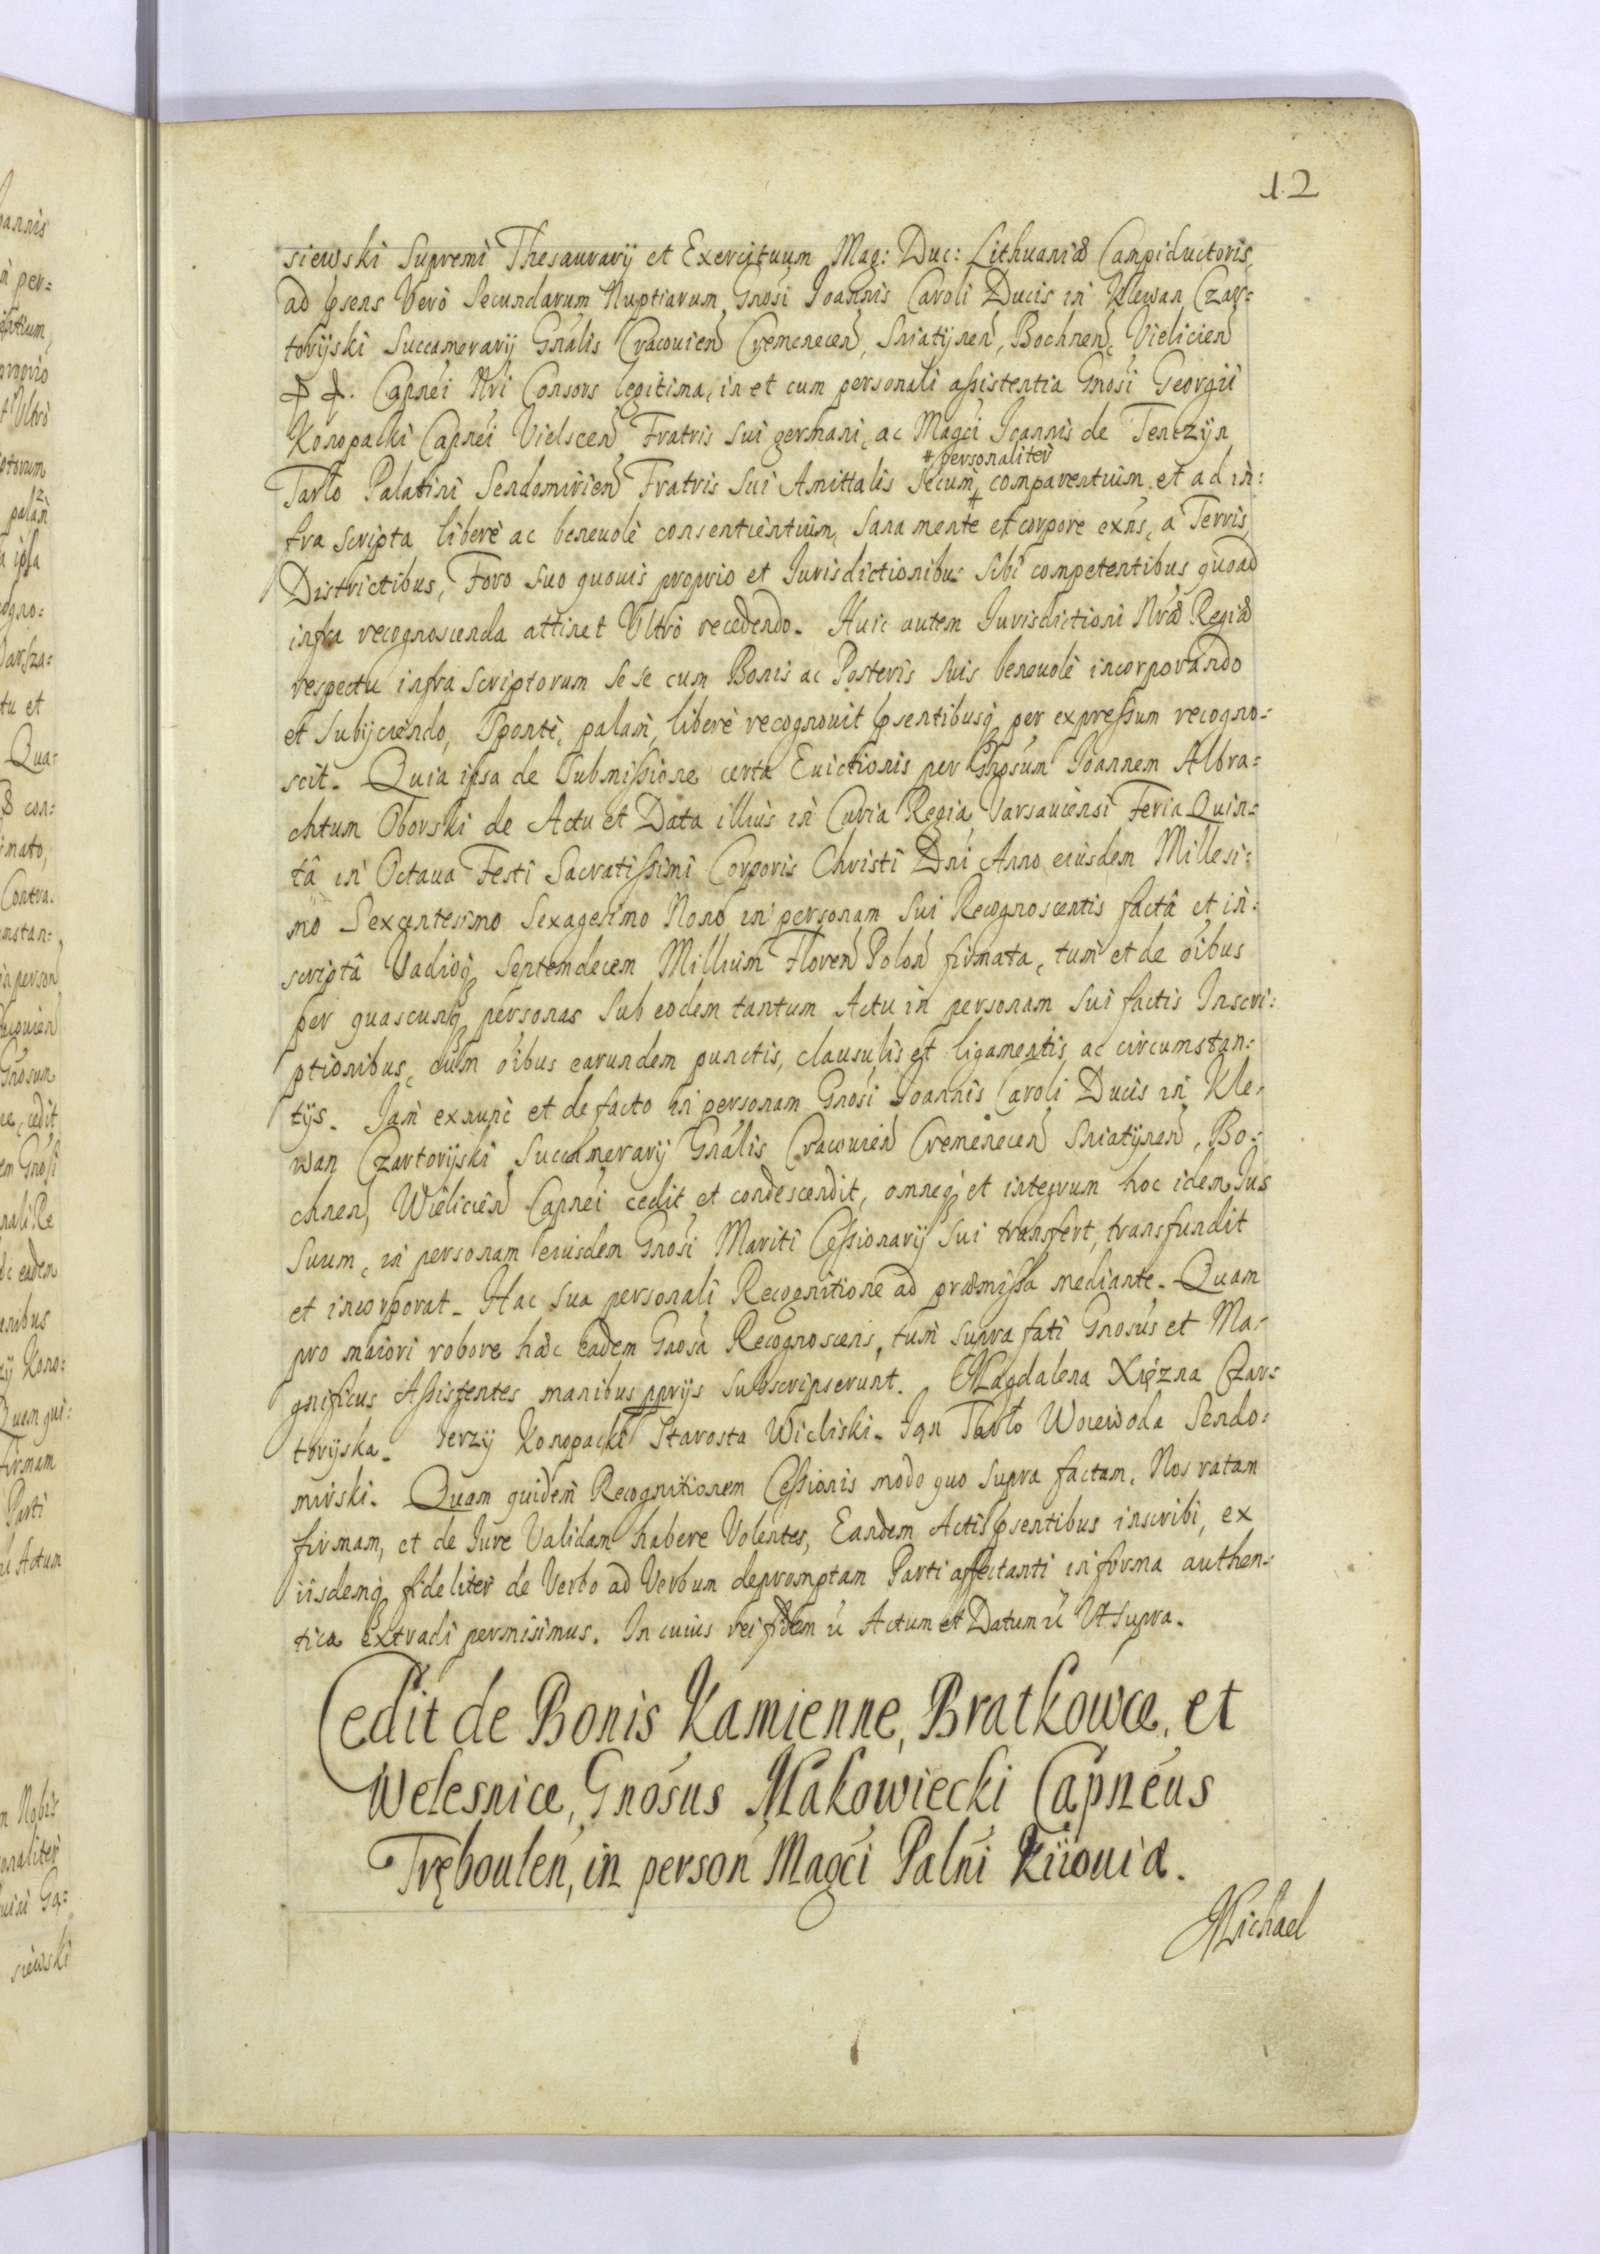 12
siewski Supremi Thesaurarij et Exercituum Mag: Duc: Lithuaniæ Campiductoris,
ad psens Verò Secundarum Nuptiarum Gnosi Joannis Caroli Ducis in Klewan Czar=
torijski Succamerarij Gnalis Cracouien Cremenecen, Sniatijnen, Bochnen, Vielicien
Capnei Nri Consors legitima, in et cum personali assistentia Gnosi Georgii
Konopacki Capnei Vielscen Fratris Sui germani, ac Magci Joannis de Tenczijn
Tarło Palatini Sendomirien Fratris Sui Amittalis Secum + comparentium et ad in:
+ personaliter
fra scripta liberè ac beneuolè consentientium, sana mente et corpore exns, a Terris,
Districtibus, Foro suo quouis proprio et Jurisdictionibus Sibi competentibus quoad
infra recognoscenda attinet Vltrò recedendo. Huic autem Jurisdictioni Nræ Regiæ
respectu infra scriptorum se se cum Bonis ac Posteris Suis beneuolè incorporando
et Subijciendo, Spontè, palam, liberè recognouit psentibusq per expressum recogno=
scit. Quia ipsa de Submissione certa Euictionis per Gnosum Joannem Albra=
chtum Oborski de Actu et Data illius in Curia Regia Varsauiensi Feria Quin=
tâ in Octaua Festi Sacratissimi Corporis Christi Dni Anno eiusdem Millesi=
mo Sexcentesimo Sexagesimo Nono in personam Sui Recognoscentis factâ et in=
scriptâ Vadioq Septemdecem Millium Floren Polon firmata, tum et de oibus
per quascunq personas Sub eodem tantum Actu in personam Sui factis Inscri:
ptionibus, cum oibus earundem punctis, clausulis et ligamentis ac circumstan=
tijs. Jam exnunc et de facto in personam Gnosi Joannis Caroli Ducis in Kle=
wan Czartorijski Succamerarij Gnalis Cracouien Cremenecen Sniatijnen, Bo=
chnen, Wielicien Capnei cedit et condescendit, omneq et integrum hoc idem Jus
Suum, in personam eiusdem Gnosi Mariti Cessionarij Sui transfert, transfundit
et incorporat. Hac sua personali Recognitione ad præmissa mediante. Quam
pro maiori robore hæc eadem Gnosa Recognoscens, tum supra fati Gnosus et Ma=
gnificus Assistentes manibus pprijs subscripserunt. Magdalena Xiężna Czar=
torijska. Jerzij Konopacki Starosta Wieliski. Jan Tarło Woiewoda Sendo=
mirski. Quam quidem Recognitionem Cessionis modo quo supra factam, Nos ratam
firmam, et de Jure Validam habere Volentes, Eandem Actis psentibus inscribi, ex
iisdemq fideliter de Verbo ad Verbum depromptam Parti affectanti in forma authen=
tica extradi permisimus. In cuius rei fidem ű Actum et Datum ű Vt supra.
Cedit de Bonis Kamienne, Bratkowce, et
Welesnice, Gnosus Makowiecki Capneus
Tręboulen, in person Magci Palni Kiiouiæ.
Michael